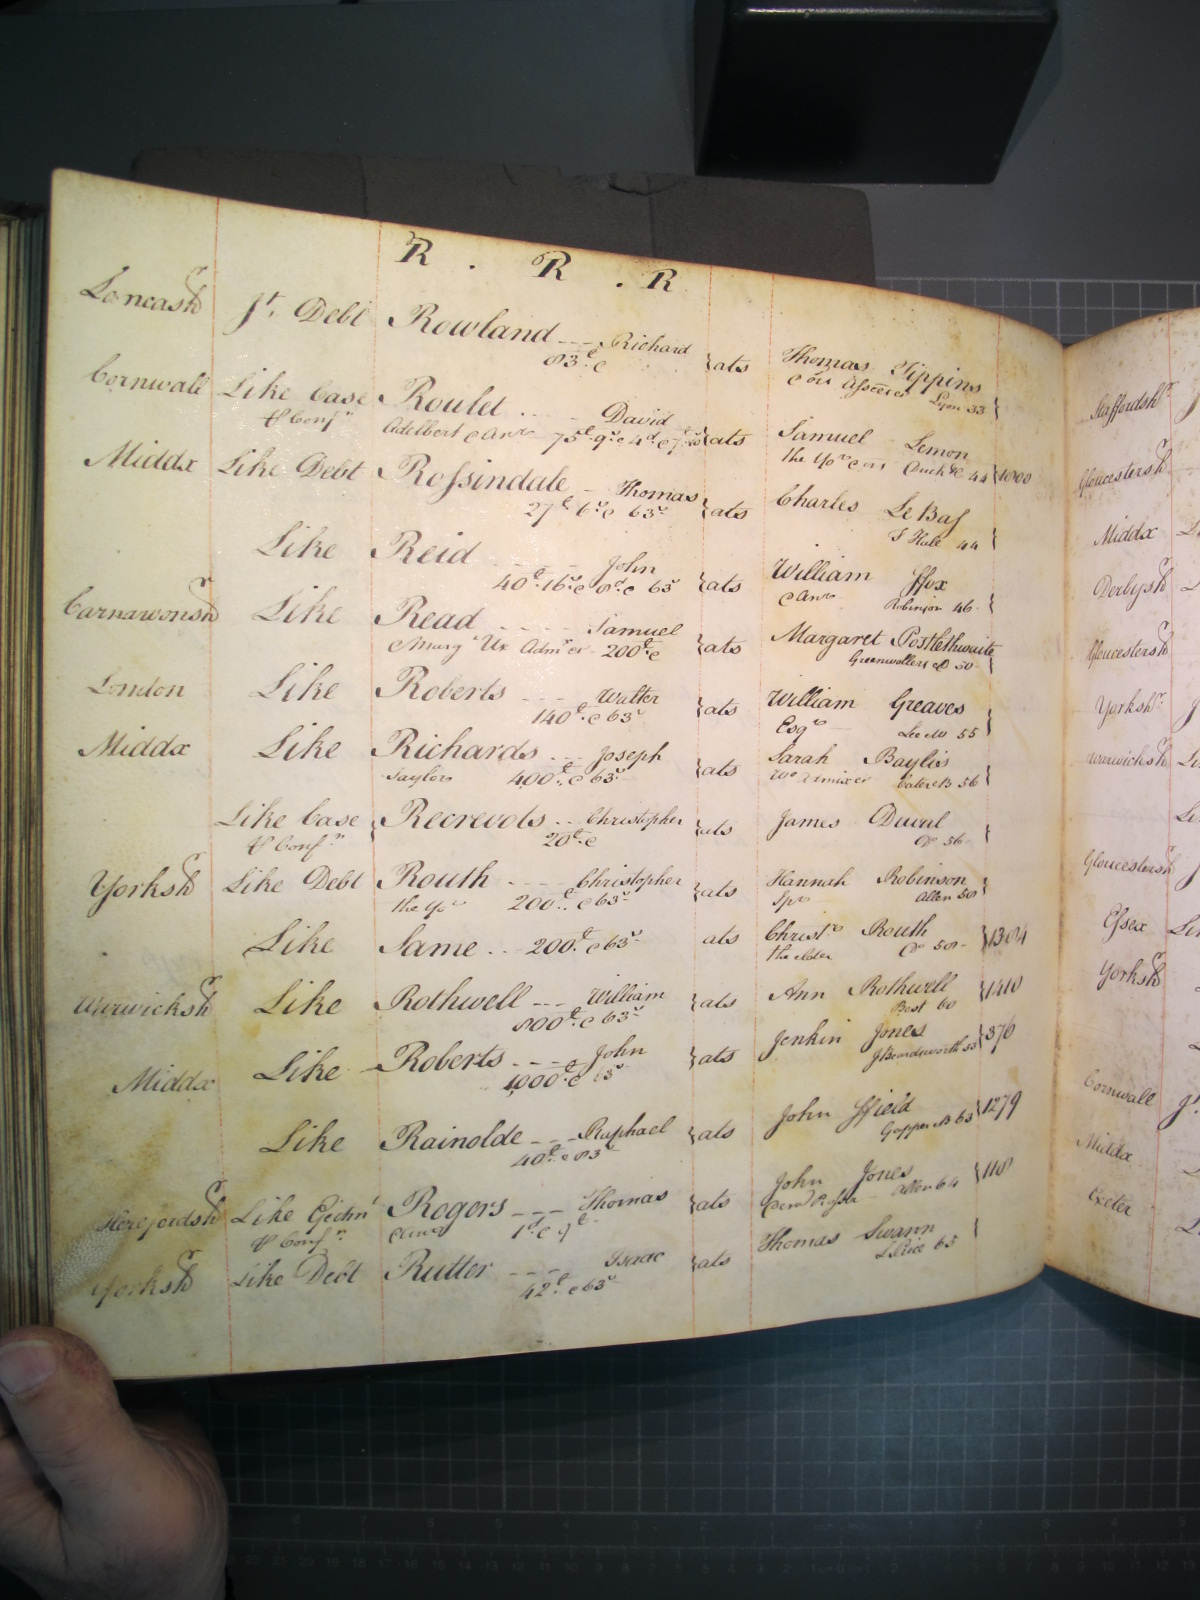 R . R . R
Lancash^r J^t. Debt Rowland --- Richard } ats Thomas Tippins
83^£ Lyon 33
Cornwall Like Case Roulet ... David } ats Samuel Lemon
& Conf^n Adelbert 75^£ 9^s 4^d the Yo^r 44 1000
Middx Like Debt Rossindale - Thomas } ats Charles Le Bas
27^£ 6^s 63^s T Hale 44
Like Reid John } ats William Ffox
40^£ 16^s 8^d 63^s Robinson 46
Carnarvonsh^r Like Read ---- Samuel } ats Margaret Postlethwaite
Mary Ux Adm^r 200^£ 50
London Like Roberts --- Walter } ats William Greaves
140^£ 63^s Esq^r Lee 55
Middx Like Richards --- Joseph } ats Sarah Baylis
Taylor 400^£ 63^s 56
Like Case Recrevots .. Christopher } ats James Duval
& Conf^n 20^£ 56
Yorksh^r Like Debt Routh ---- Christopher } ats Hannah Robinson
the Yo^r 200^£ 63^s Sp^r Allen 58
Like Same ... 200^£ 63^s ats Christ^r Routh 1384
the elder 58
Warwicksh^r Like Rothwell --- William } ats Ann Rothwell 1410
800^£ 63^s Best 60
Middx Like Roberts ---- John } ats Jenkin Jones 376
1000^£
Like Rainolde --- Raphael } ats John Ffield 1279
40^£ 83^s 63
Herefordsh^r Like Ejectm^t Rogers --- Thomas } ats John Jones 118
& Conf^n 1^d Allen 64
Yorksh^r Like Debt Rutter --- Isaac } ats Thomas Swann
42^£ 63^s 65
Staffordsh^r
Gloucestersh^r
Middx
Derbysh^r
Gloucestersh^r
Yorksh^r
Warwicksh^r
Gloucestersh^r
Essex
Yorksh^r
Cornwall
Middx
Exeter